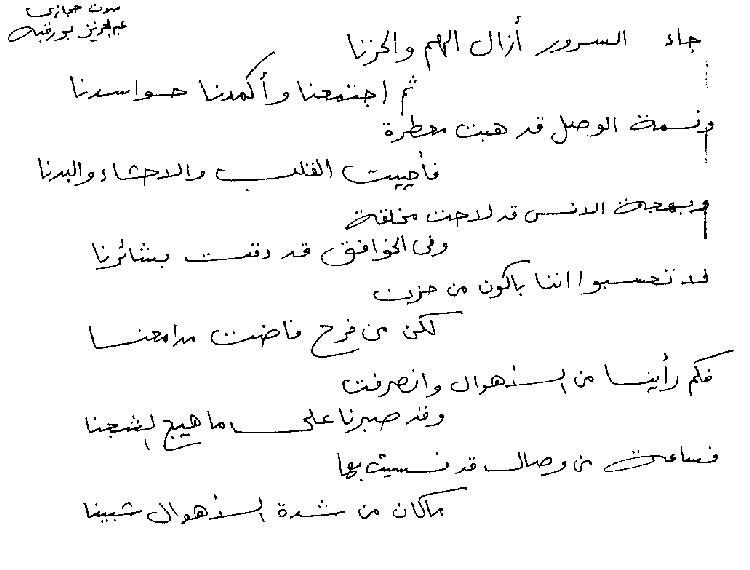 صوت حجازي
عبدالعزيز بورقبه
جاء السرور أزال الهم والحزنا
ثم اجتمعنا وأكمدنا حواسدنا
ونسمة الوصل قد هبت معطرة
فأحييت القلب والاحشاء والبدنا
وبهجة الانس قد لاحت مخلقة
وفي الخوافق قد دقت بشائرنا
لا تحسبوا اننا باكون من حزن
لكن من فرح فاضت مدامعنا
فكم رأينا من الاهوال وانصرفت
وقد صبرنا على ما هيج الشجنا
فساعة من وصال قد نسيت بها
ماكان من شدة الاهوال شيبنا